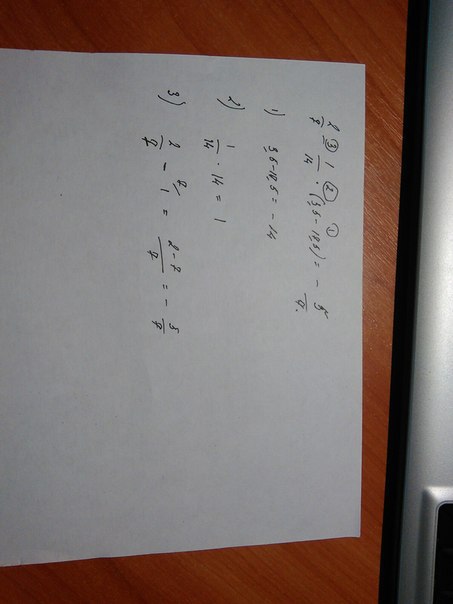 ③ ② ①
2/7 1/14 · (3,5 - 17,5) = - 5/7.
1) 3,5 - 17,5 = - 14
2) 1/14 · 14 = 1
3) 2/7 - 7/1 = 2-7/7 = - 5/7